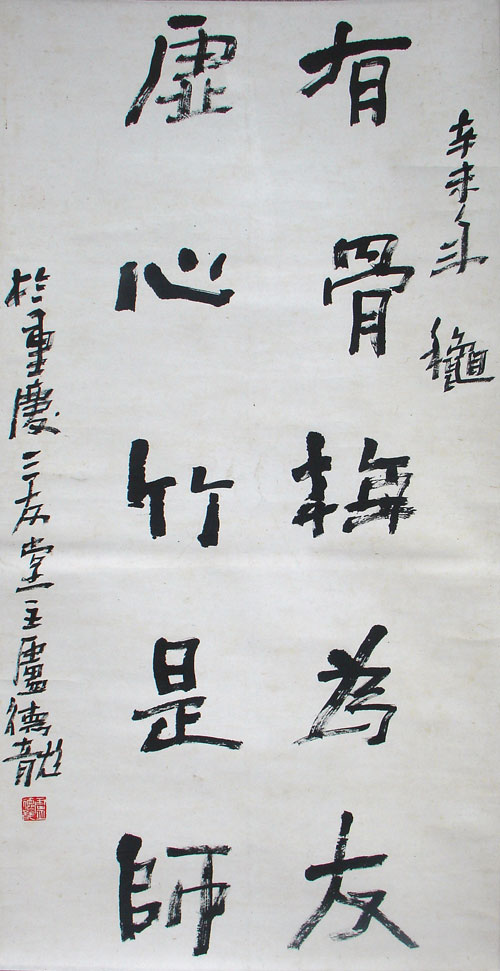 辛未年 穐
有骨梅為友
虛心竹是師
於重慶三友堂主盧德龍